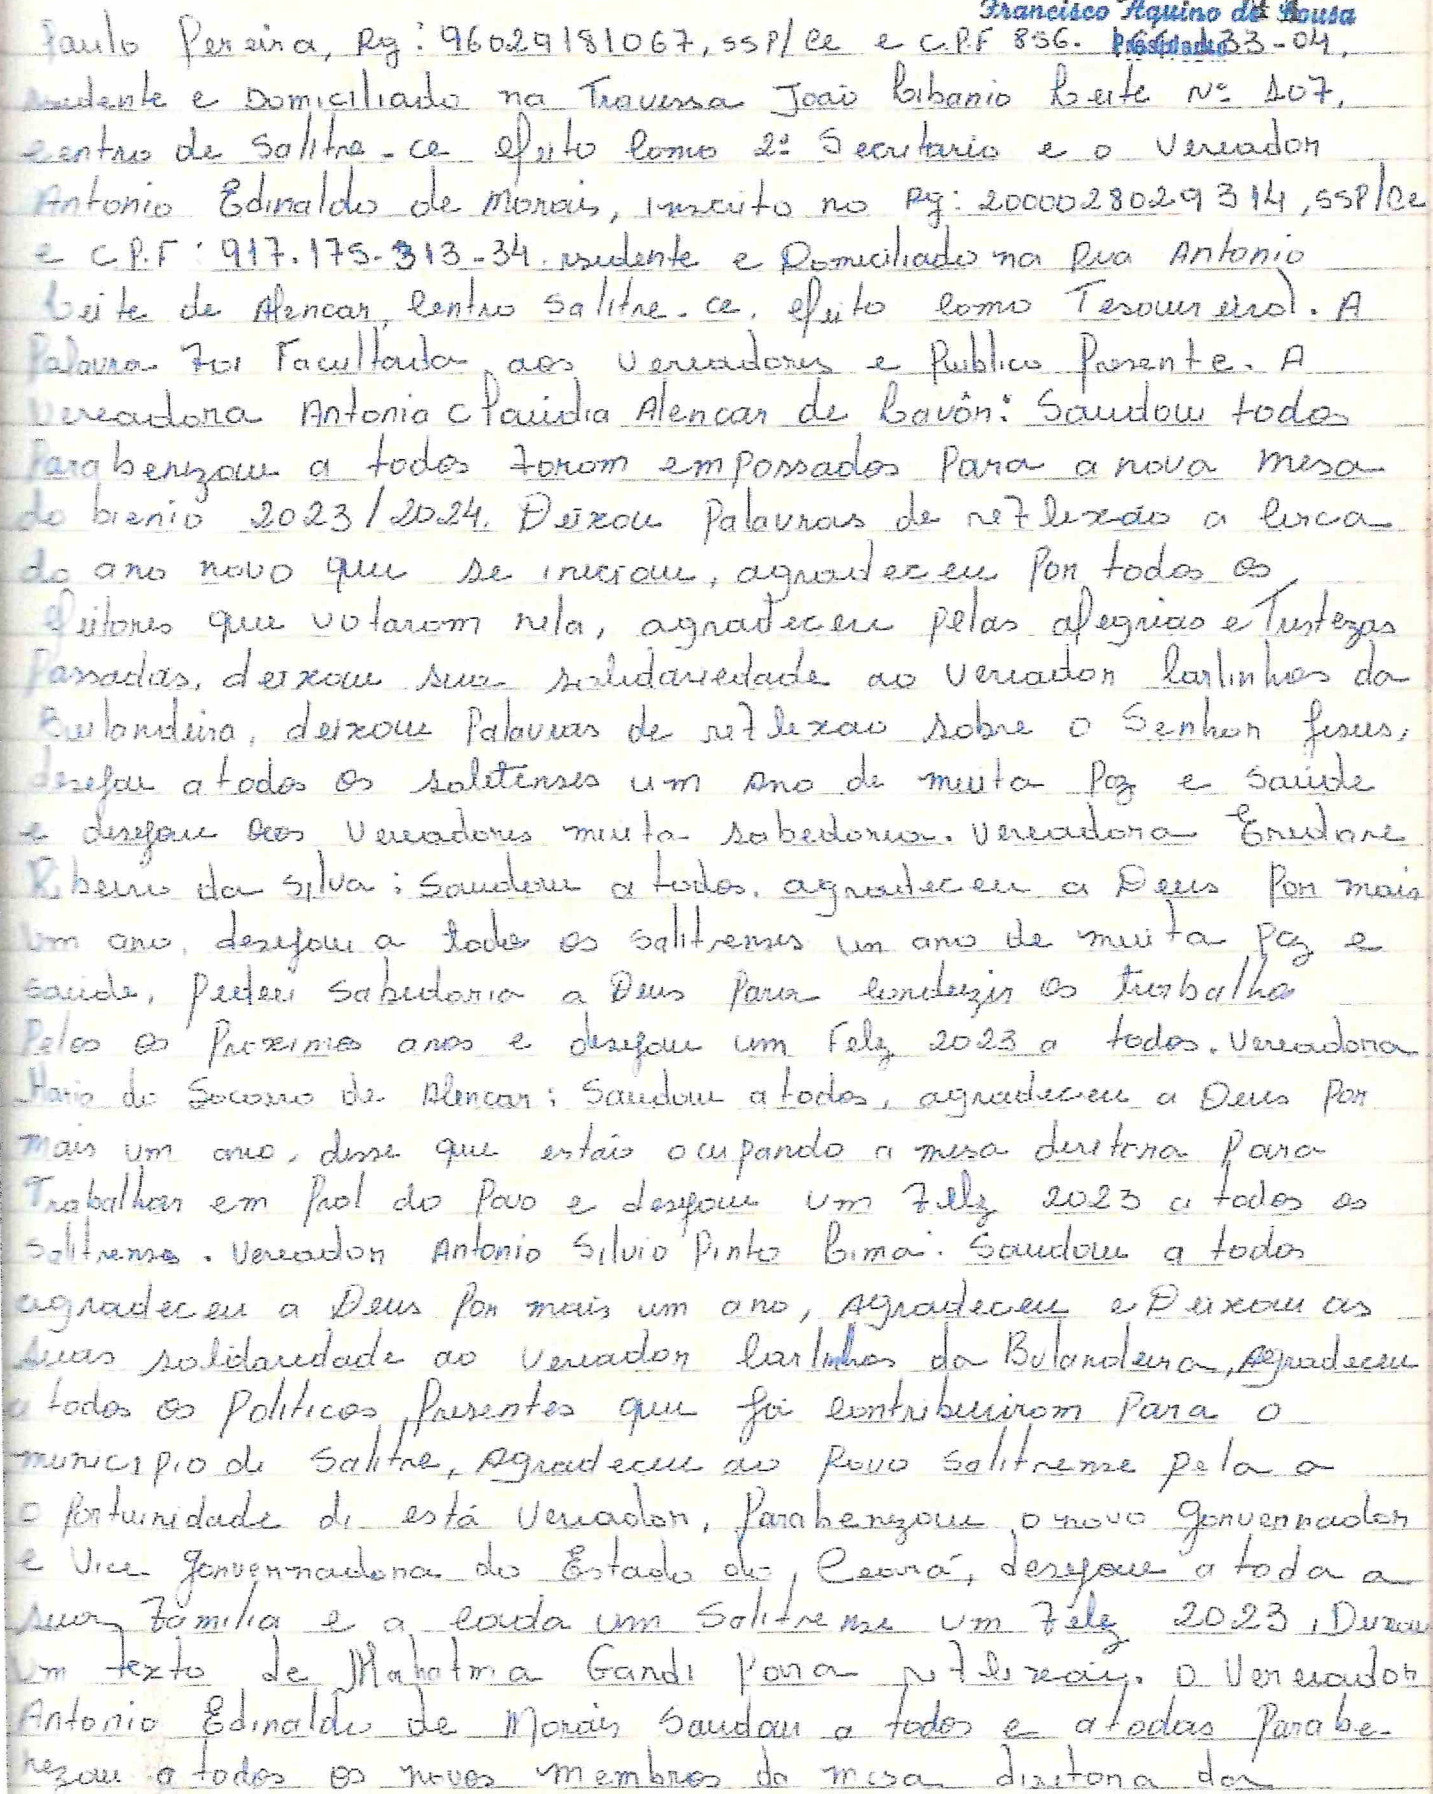 Francisco Aquino de Sousa
Presidente
Paulo Pereira, Rg: 96029181067, SSP/Ce e C.P.F 856. 133-04,
sidente e Domiciliado na Travessa João Libanio Leite Nº 107,
Centro de Salitre-ce eleito como 2º Secritario e o Vereador
Antonio Edinaldo de Morais, inscrito no Rg: 2000028029314, SSP/Ce
e C.P.F: 917.175-313-34. residente e Domiciliado na Rua Antonio
Leite de Alencar, Centro Salitre-ce. eleito como Tesoureiro). A
Palavra Foi Facultada aos Vereadores e Publico Presente. A
Vereadora Antonia Claudia Alencar de Lavôr: Saudou todos
Parabenizou a todos forom empossados Para a nova Mesa
do bienio 2023/2024. Deixou Palavras de reflexão a cerca
do ano novo que se iniciou, agradeceu Por todos os
eleitores que votarom nela, agradeceu pelas alegrias e Tristezas
Passadas, deixou sua solidariedade ao Vereador Carlinhos da
Bulandeira, deixou Palavras de reflexao sobre o Senhor Jesus,
desejou a todos os saletenses um Ano de muita Paz e Saúde
e desejou aos Vereadores muita sabedoria. Vereadora Eridane
Ribeiro da Silva: Saudou a todos. agradeceu a Deus Por mais
um ano, desejou a todos os Salitrenses um ano de muita paz e
saúde, Pediu Sabedoria a Deus Para conduzir os trabalho
Pelos os Proximos anos e desejou um Feliz 2023 a todos. Vereadora
Maria do Socorro de Alencar: Saudou a todos, agradeceu a Deus Por
mais um ano, disse que estão ocupando a mesa diretora Para
Trabalhar em Prol do Povo e desejou um Feliz 2023 a todos os
Salitrenses. Vereador Antonio Silvio Pinto Lima: Saudou a todos
agradeceu a Deus Por mais um ano, Agradeceu e Deixou as
suas solidaridade ao Vereador Carlinhos da Bulandeira, Agradeceu
a todos os Politicos Presentes que já contribuirom Para o
municipio de Salitre, Agradeceu ao Povo Salitrense pela a
oPortunidade di está Vereador, Parabenizou o novo Gonvernnador
e Vice Gonvernnadora do Estado do Ceará, desejou a toda a
sua Familia e a cada um Salitrense um Feliz 2023, Deixou
um texto de Mahatma Gandi Para reflexão. O Vereador
Antonio Edinaldo de Morais Saudou a todos e a todas Parabe-
nizou a todos os novos membros da mesa diretora da